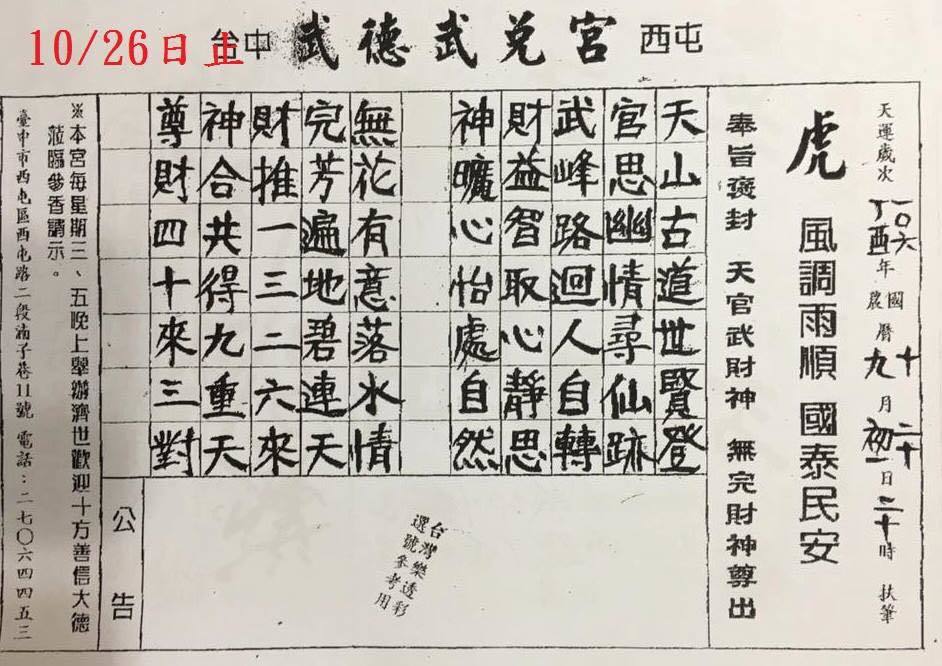 10/26日止
台中 武德武兌宮 西屯
天運歲次 一〇六 丁酉年 國農曆 十九月 二十初一日 二十時 扶筆
虎 風調雨順 國泰民安
奉旨褒封 天官武財神 無完財神尊出
天山古道世賢登
官思幽情尋仙跡
武峰路迴人自轉
財益智取心靜思
神曠心怡處自然
無花有意落水情
完芳遍地碧連天
財推一三二六來
神合共得九重天
尊財四十來三對
公告
台灣樂透彩
選號參考用
※本宮每星期三、五晚上舉辦濟世歡迎十方善信大德
蒞臨參香請示。
臺中市西屯區西屯路二段湳子巷11號 電話：二七〇六四四五三